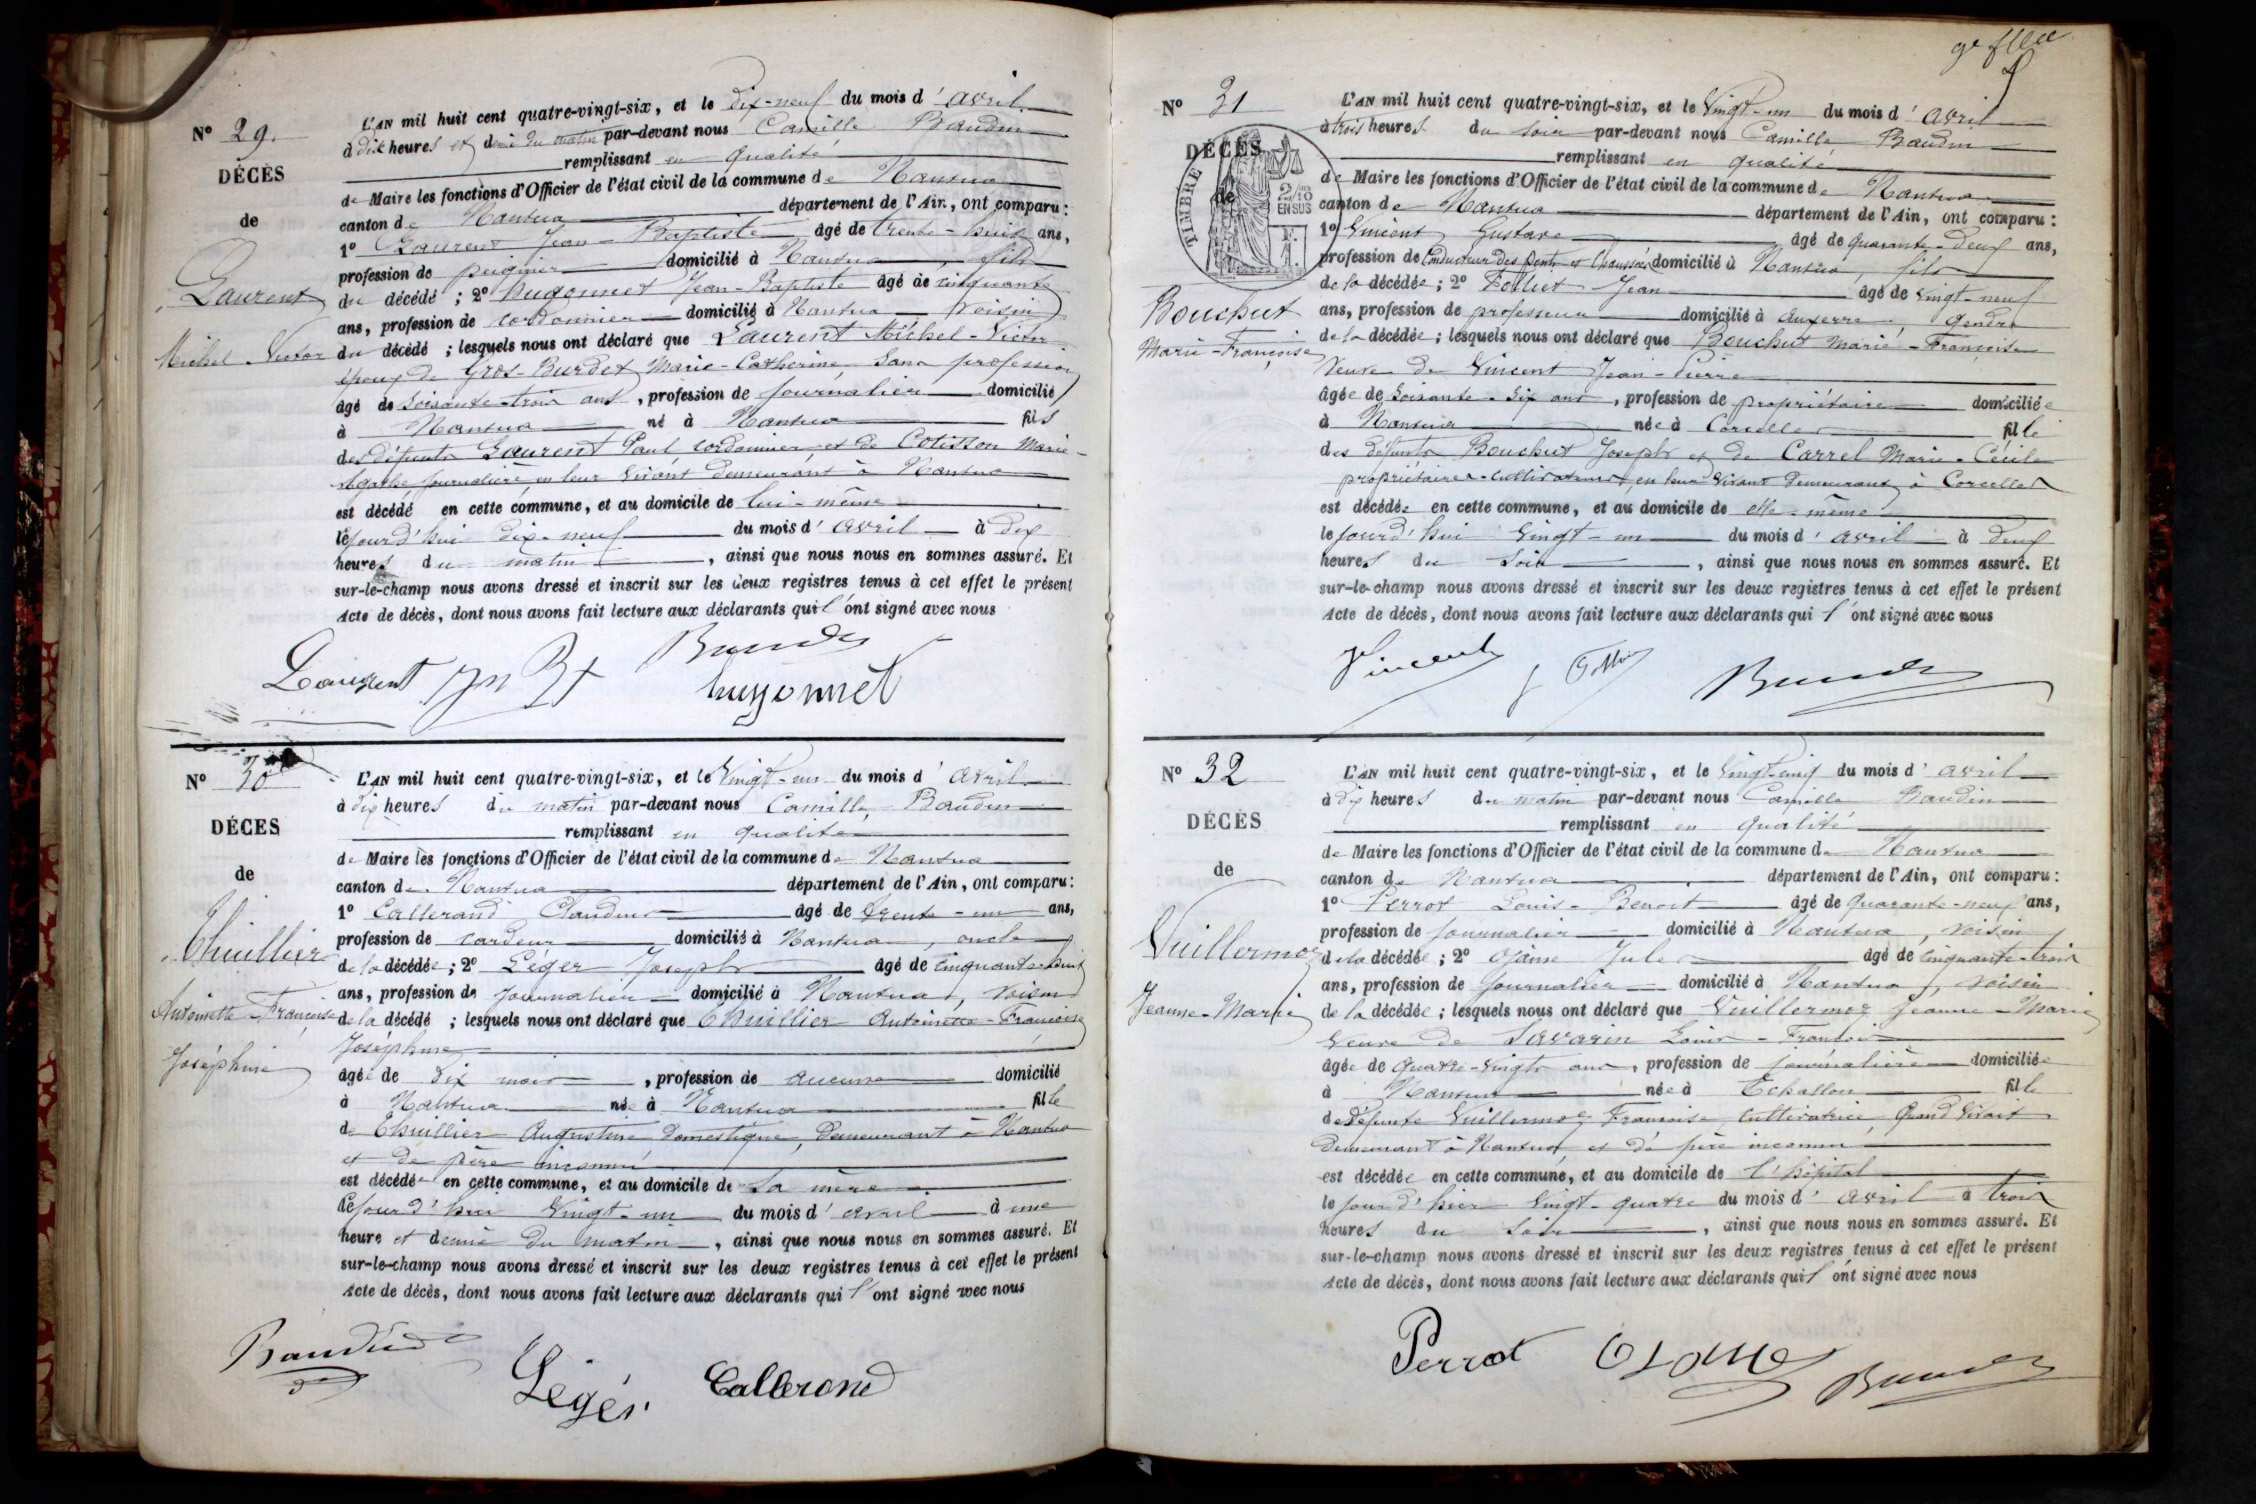 N° 29.
DÉCÈS
de
Laurent
Michel Victor
L'AN mil huit cent quatre-vingt-six, et le dix-neuf du mois d'avril
à dix heures et demie du matin par-devant nous Camille Baudin
remplissant en qualité
de Maire les fonctions d'Officier de l'état civil de la commune de Nantua
canton de Nantua département de l'Ain, ont comparu :
1° Laurent Jean-Baptiste âgé de trente-huit ans,
profession de peignier domicilié à Nantua, fils
du décédé ; 2° hugonnet Jean-Baptiste âgé de cinquante
ans, profession de cordonnier domicilié à Nantua voisin
du décédé ; lesquels nous ont déclaré que Laurent Michel-Victor
époux de Gros-Burdet Marie-Catherine Sans profession
âgé de soixante-trois ans, profession de journalier domicilié
à Nantua né à Nantua fils
des défunts Laurent Paul cordonnier et de Cotisson Marie-
Agathe journalière en leur vivant demeurant à Nantua
est décédé en cette commune, et au domicile de lui-même
le jourd'hui dix-neuf du mois d'avril à dix
heures du matin, ainsi que nous nous en sommes assuré. Et
sur-le-champ nous avons dressé et inscrit sur les deux registres tenus à cet effet le présent
Acte de décès, dont nous avons fait lecture aux déclarants qui l'ont signé avec nous
Laurent Baudin
hugonnet
N° 30
DÉCÈS
de
Thuillier
Antoinette Françoise
Joséphine
L'AN mil huit cent quatre-vingt-six, et le vingt-un du mois d'avril
à dix heures du matin par-devant nous Camille Baudin
remplissant en qualité
de Maire les fonctions d'Officier de l'état civil de la commune de Nantua
canton de Nantua département de l'Ain, ont comparu :
1° Callerand Claudius âgé de trente-un ans,
profession de cardeur domicilié à Nantua, oncle
de la décédée ; 2° Léger Joseph âgé de cinquante-huit
ans, profession de journalier domicilié à Nantua, voisin
de la décédé ; lesquels nous ont déclaré que Thuillier Antoinette-Françoise
Joséphine
âgée de dix mois, profession de aucune domicilié
à Nantua née à Nantua fille
de Thuillier Augustine domestique, demeurant à Nantua
et de père inconnu
est décédée en cette commune, et au domicile de sa mère
le jourd'hui vingt-un du mois d'avril à une
heure et demie du matin, ainsi que nous nous en sommes assuré. Et
sur-le-champ nous avons dressé et inscrit sur les deux registres tenus à cet effet le présent
Acte de décès, dont nous avons fait lecture aux déclarants qui l'ont signé avec nous
Baudin Légér Callerand
N° 31
DÉCÈS
de
TIMBRE
2/10 EN SUS
Bouchut
Marie-Françoise
L'AN mil huit cent quatre-vingt-six, et le vingt-un du mois d'avril
à trois heures du soir par-devant nous Camille Baudin
remplissant en qualité
de Maire les fonctions d'Officier de l'état civil de la commune de Nantua
canton de Nantua département de l'Ain, ont comparu :
1° Vincent Gustave âgé de quarante-deux ans,
profession de Conducteur des ponts et chaussées domicilié à Nantua, fils
de la décédée ; 2° Folliet Jean âgé de vingt-neuf
ans, profession de professeur domicilié à Auxerre, gendre
de la décédée ; lesquels nous ont déclaré que Bouchut Marie-Françoise
Veuve de Vincent Jean-Pierre
âgée de soixante-six ans, profession de propriétaire domiciliée
à Nantua née à Corcelles fille
des défunts Bouchut Joseph et de Carrel Marie-Cécile
propriétaires-cultivateurs, en leur vivant demeurant à Corcelles
est décédée en cette commune, et au domicile de elle-même
le jourd'hui vingt-un du mois d'avril à deux
heures du soir, ainsi que nous nous en sommes assuré. Et
sur-le-champ nous avons dressé et inscrit sur les deux registres tenus à cet effet le présent
Acte de décès, dont nous avons fait lecture aux déclarants qui l'ont signé avec nous
Vincent Baudin
N° 32
DÉCÈS
de
Vuillermoz
Jeanne-Marie
L'AN mil huit cent quatre-vingt-six, et le vingt-cinq du mois d'avril
à dix heures du matin par-devant nous Camille Baudin
remplissant en qualité
de Maire les fonctions d'Officier de l'état civil de la commune de Nantua
canton de Nantua département de l'Ain, ont comparu :
1° Perrot Louis-Benoit âgé de quarante-neuf ans,
profession de journalier domicilié à Nantua, voisin
de la décédée ; 2° Ojaine Jules âgé de cinquante-trois
ans, profession de journalier domicilié à Nantua, voisin
de la décédée ; lesquels nous ont déclaré que Vuillermoz Jeanne-Marie
veuve de Savarin Louis-François
âgée de quatre-vingts ans, profession de journalière domiciliée
à Nantua née à Echallon fille
de défunte Vuillermoz Françoise, cultivatrice, quand vivait
demeurant à Nantua, et de père inconnu
est décédée en cette commune, et au domicile de l'hôpital
le jour d'hier vingt-quatre du mois d'avril à trois
heures du soir, ainsi que nous nous en sommes assuré. Et
sur-le-champ nous avons dressé et inscrit sur les deux registres tenus à cet effet le présent
Acte de décès, dont nous avons fait lecture aux déclarants qui l'ont signé avec nous
Perrot Baudin